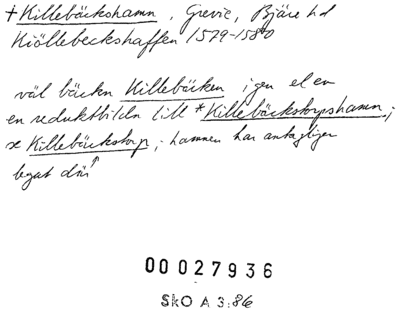 † Killebäckshamn, Grevie, Bjäre hd
Kiöllebeckshaffen 1579-1580
väl bäcken Killebäcken; gen el en
en reduktbildn till *Killebäckstorpshamn;
se Killebäckstorp; hamnen har antagligen
legat där
00 027936
SkO A 3:86